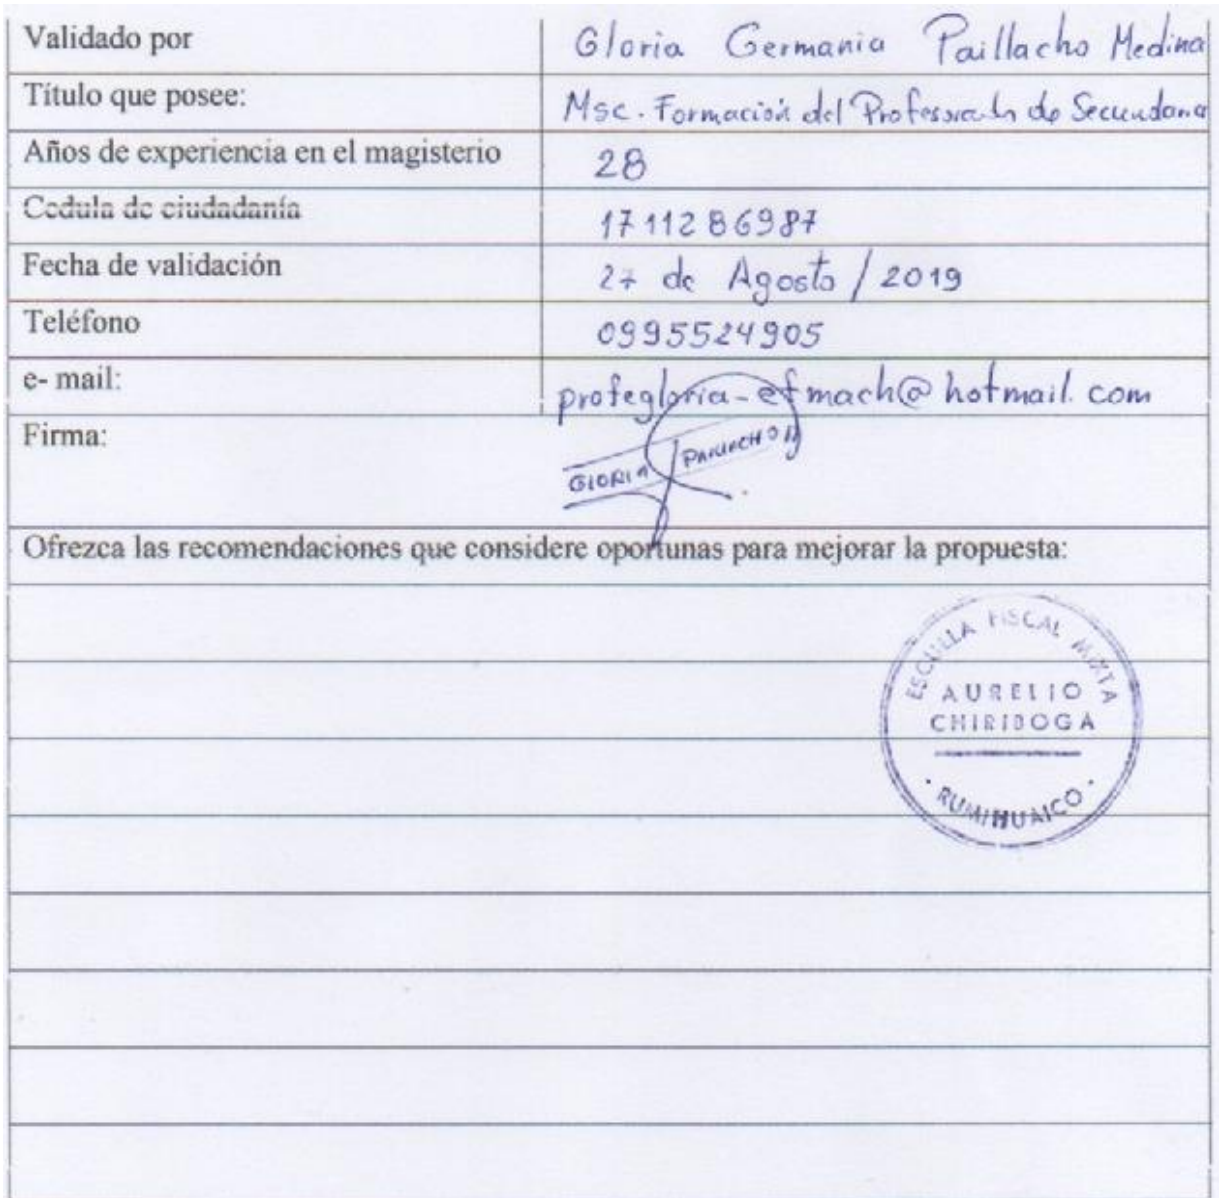 Validado por Gloria Germania Paillacho Medina
Título que posee: Msc. Formación del Profesorado de Secundaria
Años de experiencia en el magisterio 28
Cedula de ciudadanía 1711286987
Fecha de validación 27 de Agosto / 2019
Teléfono 0995524905
e- mail: profegloria-efmach@hotmail.com
Firma: GLORIA PAILLACHO M
Ofrezca las recomendaciones que considere oportunas para mejorar la propuesta:
ESCUELA FISCAL MIXTA
AURELIO
CHIRIBOGA
RUMIHUAICO